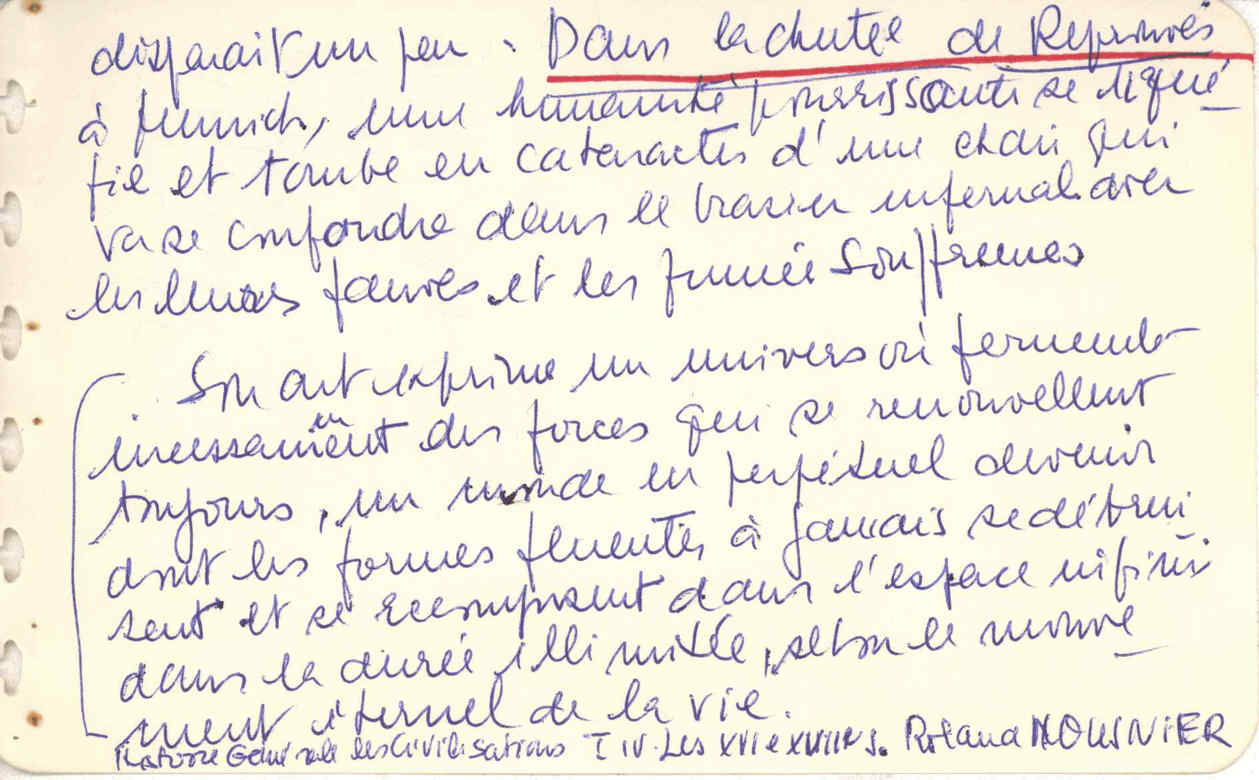 disparait un peu. Dans la chute de Réprouvés
à Munich, une humanité pourrissante se liqué
fie et tombe en cataractes d'une chair qui
va se confondre dans le brasier infernal avec
les lueurs fauves et les fumées souffreuses
Son art exprime un univers où fermentent
incessamment des forces qui se renouvellent
toujours, un monde en perpétuel devenir
dont les formes fluentes à jamais se détrui
sent et se recomposent dans l'espace infini
dans la durée illimitée, selon le mouve
ment éternel de la vie.
Histoire Générale des Civilisations T IV. Les XVI e XVIII e s. Roland MOUSNIER